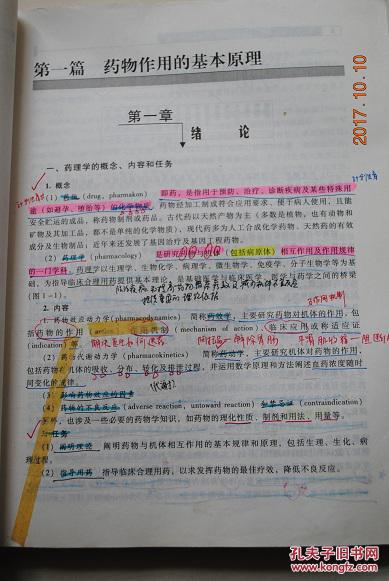 第一篇 药物作用的基本原理
第一章
绪 论
一、药理学的概念、内容和任务
1. 概念
(1) 药物 (drug, pharmakon) 即药，是指用于预防、治疗、诊断疾病及某些特殊用
途（如避孕、堕胎等）的化学物质。药物经加工制成符合应用要求、便于病人使用、且能
安全贮运的成品，称药物制剂或药品。古代以天然产物为主（多数是植物，也有动物和
矿物及其加工品，都不是单纯的化学物质）。现代药多为人工合成化学药物、天然药的有效
成分及生物制品；近年来还发展了基因治疗及基因工程药物。
(2) 药理学 (pharmacology) 是研究药物与机体（包括病原体）相互作用及作用规律
的一门学科。药理学以生理学、生物化学、病理学、微生物学、免疫学、分子生物学等为基
础，为指导临床合理用药提供基本理论，是基础医学与临床医学、医学与药学之间的桥梁
(图 1-1)。
2. 内容
(1) 药物效应动力学 (pharmacodynamics) 简称药效学，主要研究药物对机体的作用，包
括药物的作用 (action)、作用机制 (mechanism of action)、临床应用或称适应证
(indication) 等。
(2) 药物代谢动力学 (pharmacokinetics) 简称药动学，主要研究机体对药物的作用，
包括药物在机体的吸收、分布、转化及排泄过程，并运用数学原理和方法阐述血药浓度随时
间变化的规律。
(3) 影响药物效应的因素
(4) 药物的不良反应 (adverse reaction, untoward reaction) 和禁忌证 (contraindication)
此外，也涉及一些必要的药物学知识，如药物的理化性质、制剂和用法、用量等。
3. 任务
(1) 阐明理论 阐明药物与机体相互作用的基本规律和原理，包括生理、生化、病
理过程。
(2) 指导用药 指导临床合理用药，以求发挥药物的最佳疗效，降低不良反应。
2017.10.10
孔夫子旧书网